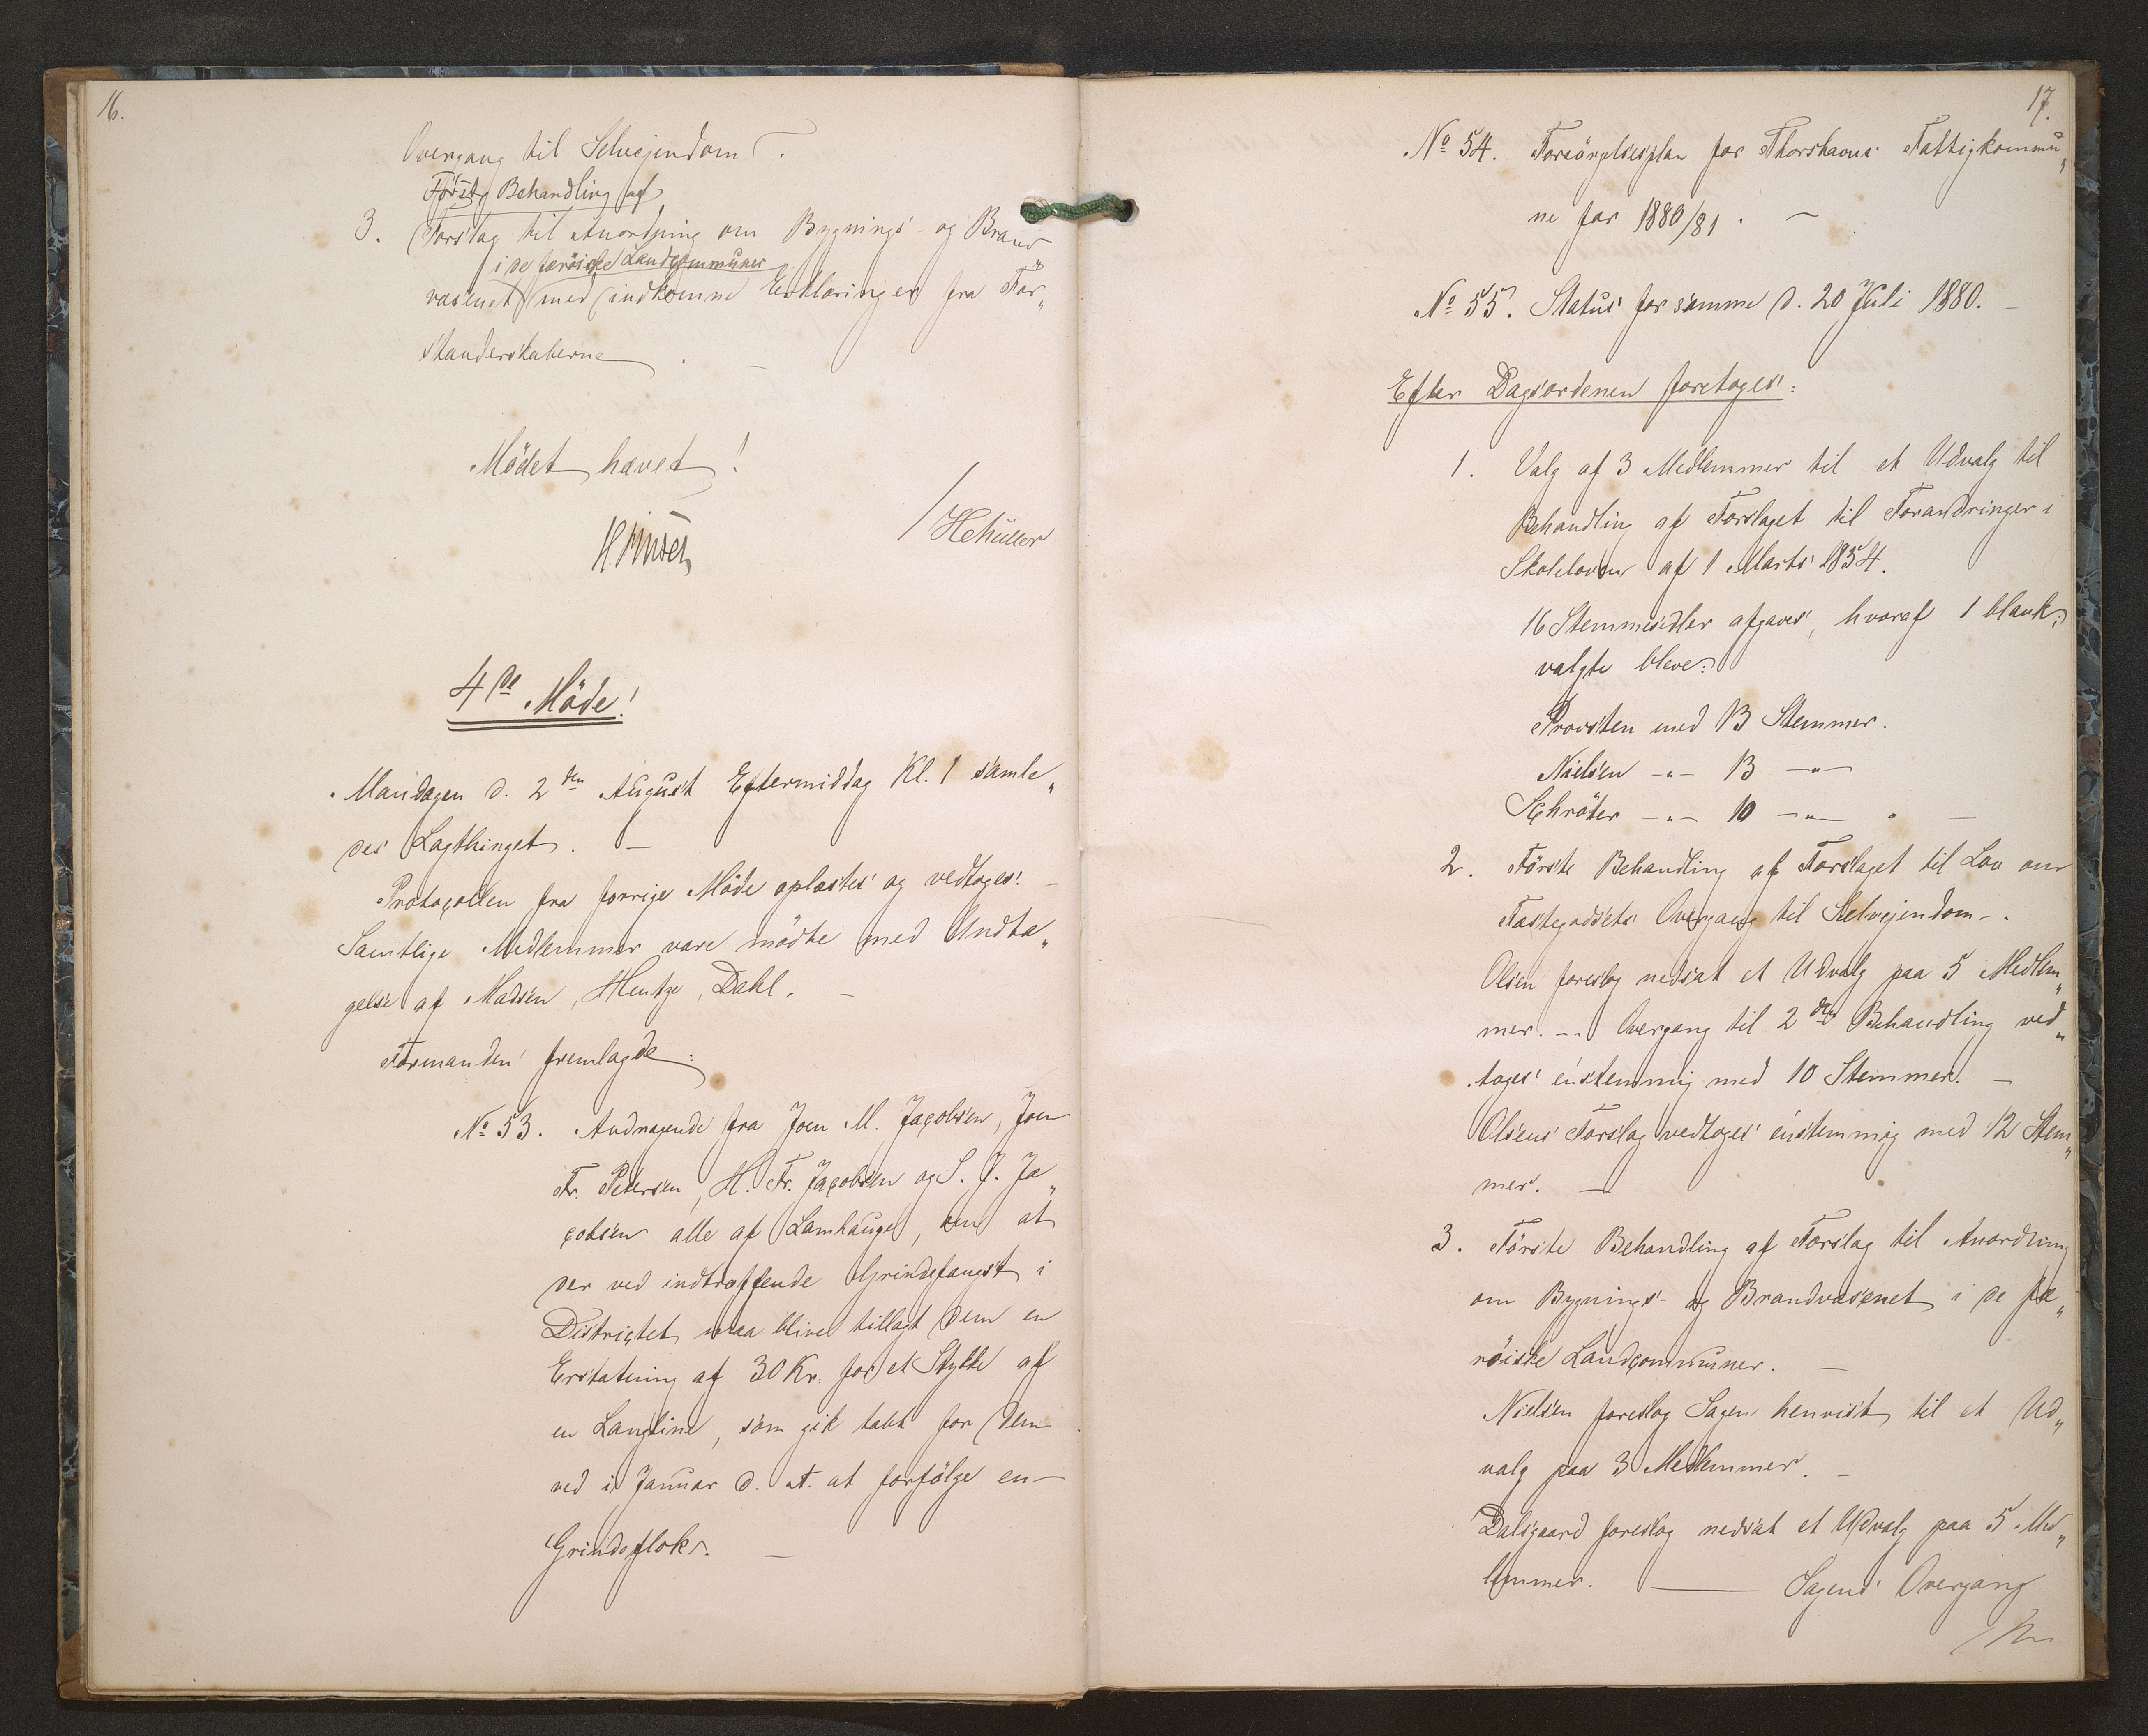 16.
Overgang til Selvejendom.
Første Behandling af
3. Forslag til Anordning om Bygnings- og Brand-
i de færøiske Landcommuner
væsenet med indkomne Erklæringer fra For„
standerskaberne. —
Mödet hævet!
HMüller
4de Möde!
Mandagen d. 2den August Eftermiddag Kl. 1 samle„
des Lagthinget. —
Protocollen fra forrige Möde oplæstes og vedtoges. —
Samtlige Medlemmer vare mödte med Undta„
gelse af Madsen, Hentze, Dahl. —
Formanden fremlagde:
No 53. Andragende fra Joen M. Jacobsen, Joen
Fr. Petersen, H. Fr. Jacobsen og S. J. Ja„
cobsen alle af Lamhauge, om at
der ved indtræffende Grindefangst i
Districtet maa blive tillagt dem en
Erstatning af 30 Kr. for et Stykke af
en Langline, som gik tabt for dem
ved i Januar d. A. at forfölge en
Grindeflok. —
17.
No 54. Forsörgelsesplan for Thorshavns Fattigkommu„
ne for 1880/81. —
No 55. Status for samme d. 20 Juli 1880. —
Efter Dagsordenen foretoges:
1. Valg af 3 Medlemmer til et Udvalg til
Behandling af Forslaget til Forandringer i
Skoleloven af 1 Marts 1854.
16 Stemmesedler afgaves, hvoraf 1 blank;
valgte bleve:
Provsten med 13 Stemmer.
Nielsen -„- 13 -„-
Schröter -„- 10 -„- . —
2. Förste Behandling af Forslaget til Lov om
Fæstegodsets Overgang til Selvejendom -.
Olsen foreslog nedsat et Udvalg paa 5 Medlem„
mer. -- Overgang til 2den Behandling ved„
toges énstemmig med 10 Stemmer. —
Olsens Forslag vedtoges énstemmig med 12 Stem„
mer. —
3. Förste Behandling af Forslag til Anordning
om Bygnings- og Brandvæsenet i de fæ„
röiske Landcommuner. —
Nielsen foreslog Sagen henvist til et Ud„
valg paa 3 Medlemmer. —
Dalsgaard foreslog nedsat et Udvalg paa 5 Med„
lemmer. — Sagens Overgang